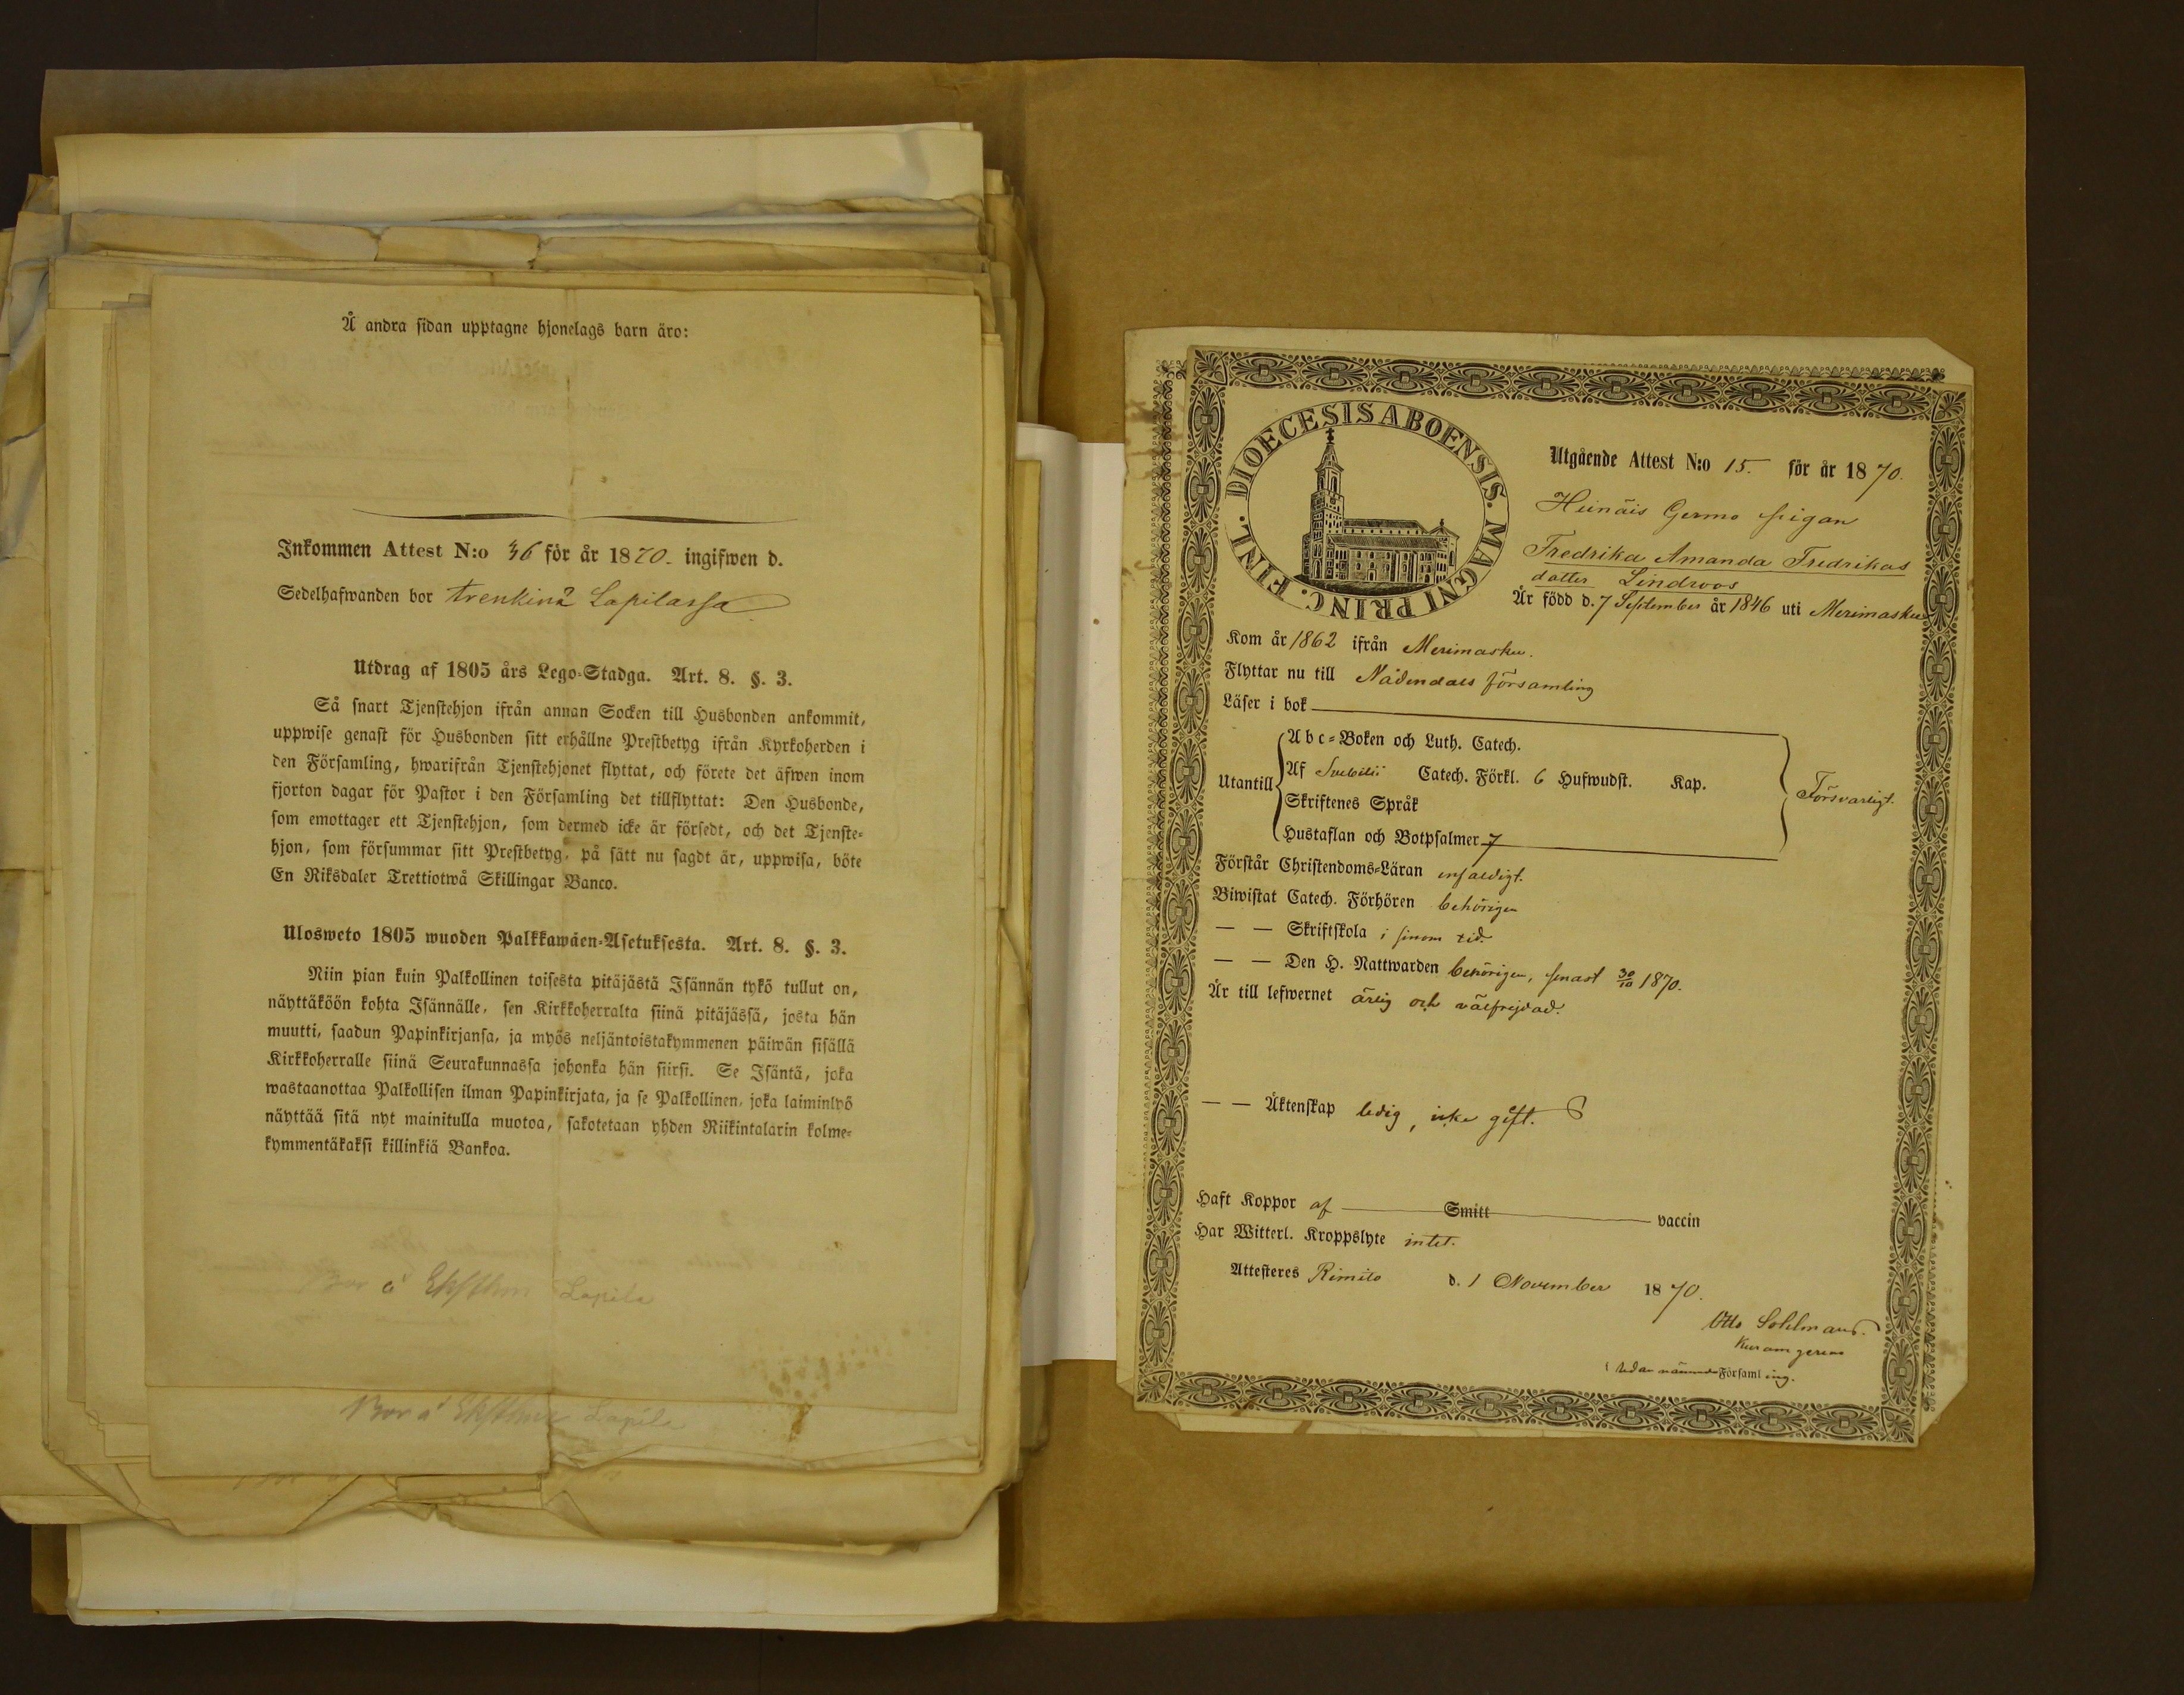 Å andra sidan upptagne hjonelags barn äro:
Inkommen Attest N:o 46 för år 1870. ingifwen d.
Sedelhafwanden bor trenkinä Lapilassa
Utdrag af 1805 års Lego-Stadga. Art. 8. §. 3.
Så snart Tjenstehjon ifrån annan Socken till Husbonden ankommit,
uppwise genast för Husbonden sitt erhållne Prestbetyg ifrån Kyrkoherden i
den Församling, hwarifrån Tjenstehjonet flyttat, och förete det äfwen inom
fjorton dagar för Pastor i den Församling det tillflyttat: Den Husbonde,
som emottager ett Tjenstehjon, som dermed icke är försedt, och det Tjenste-
hjon, som försummar sitt Prestbetyg, på sätt nu sagdt är, uppwisa, böte
En Riksdaler Trettiotwå Skillingar Banco.
Ulosweto 1805 wuoden Palkkawäen-Asetuksesta. Art. 8. §. 3.
Niin pian kuin Palkollinen toisesta pitäjästä Isännän tykö tullut on,
näyttäköön kohta Isännälle, sen Kirkkoherralta siinä pitäjässä, josta hän
muutti, saadun Papinkirjansa, ja myös neljäntoistakymmenen päiwän sisällä
Kirkkoherralle siinä Seurakunnassa johonka hän siirsi. Se Isäntä, joka
wastaanottaa Palkollisen ilman Papinkirjata, ja se Palkollinen, joka laiminlyö
näyttää sitä nyt mainitulla muotoa, sakotetaan yhden Riikintalarin kolme-
kymmentäkaksi killinkiä Bankoa.
Bor å Lapila
Bor å Lapila
DIOECESIS ABOENSIS. MAGNI PRINC. FINL.
Utgående Attest N:o 15. för år 1870.
Heinäis Germo pigan
Fredrika Amanda Fredrikas
dotter Lindroos
Är född d. 7 September år 1846 uti Merimasku
Kom år 1862 ifrån Merimasku.
Flyttar nu till Nådendals församling
Läser i bok
Utantill
Abc-Boken och Luth. Catech.
Af Svebilii Catech. Förkl. 6 Hufwudst. Kap.
Skriftenes Språk
Hustaflan och Botpsalmer 7
Försvarligt.
Förstår Christendoms-Läran enfaldigt.
Biwistat Catech. Förhören behörigen
— — Skriftskola i sinom tid.
— — Den H. Nattwarden behörigen, senast 30/10 1870.
Är till lefwernet ärlig och välfrejdad.
— — Äktenskap ledig, icke gift.
Haft Koppor af Smitt vaccin
Har Witterl. Kroppslyte intet.
Attesteres Rimito d. 1 November 1870.
Otto Sohlman
Församling.